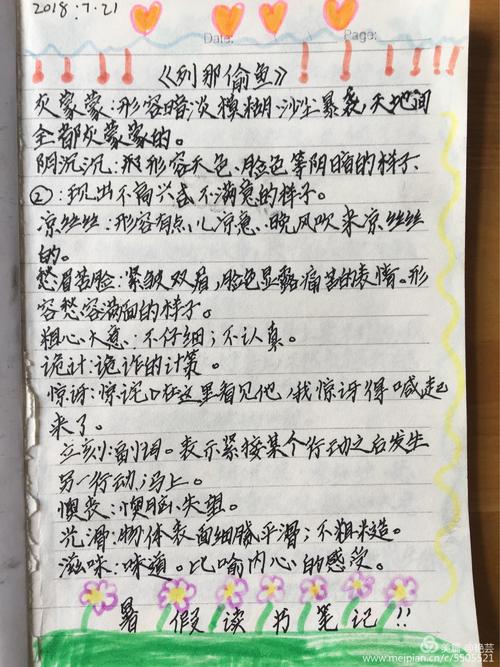 2018.7.21
Date:
Page:
《列那偷鱼》
灰蒙蒙:形容暗淡模糊.沙尘暴袭,天地间
全都灰蒙蒙的。
阴沉沉:形容天色、脸色等阴暗的样子.
②:现出不高兴.不满意的样子。
凉丝丝:形容有点儿凉意.晚风吹来凉丝丝
的。
愁眉苦脸:紧皱双眉,脸色显露痛苦的表情。形
容愁容满面的样子。
粗心大意:不仔细;不认真。
诡计:诡诈的计策。
惊讶:惊诧.在这里看见他,我惊讶得喊起
来了。
立刻:副词。表示紧接某个行动之后发生
另一行动;马上。
懊丧:懊脑、失望。
光滑:物体表面细腻平滑;不粗糙。
滋味:味道。比喻内心的感受。
暑假读书笔记!!
美篇 @艳芸
www.meipian.cn/c/5505521